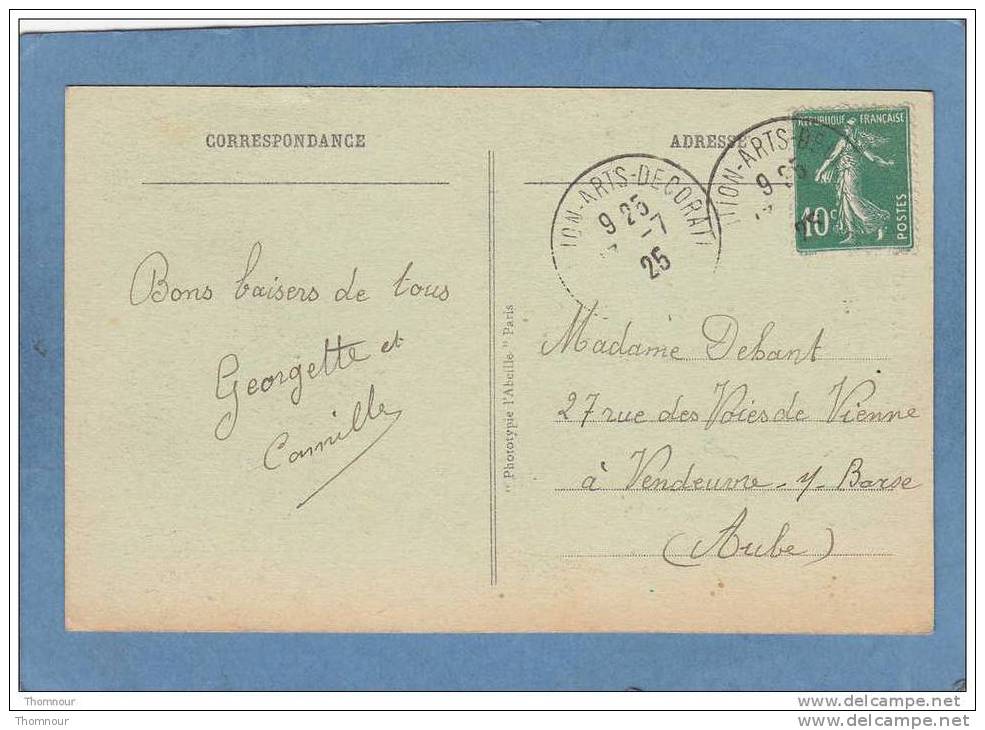 CORRESPONDANCE
Bons baisers de tous
Georgette et
Camille
" Phototypie l'Abeille " Paris
ADRESSE
ION-ARTS-DECORATI
9 25
-7
25
ITION-ARTS-DE
9 25
25
REPUBLIQUE FRANÇAISE
10c
POSTES
Madame Dehant
27 rue des Voies de Vienne
à Vendeuvre-s/-Barse
(Aube)
Thomnour
Thomnour
www.delcampe.net
www.delcampe.net